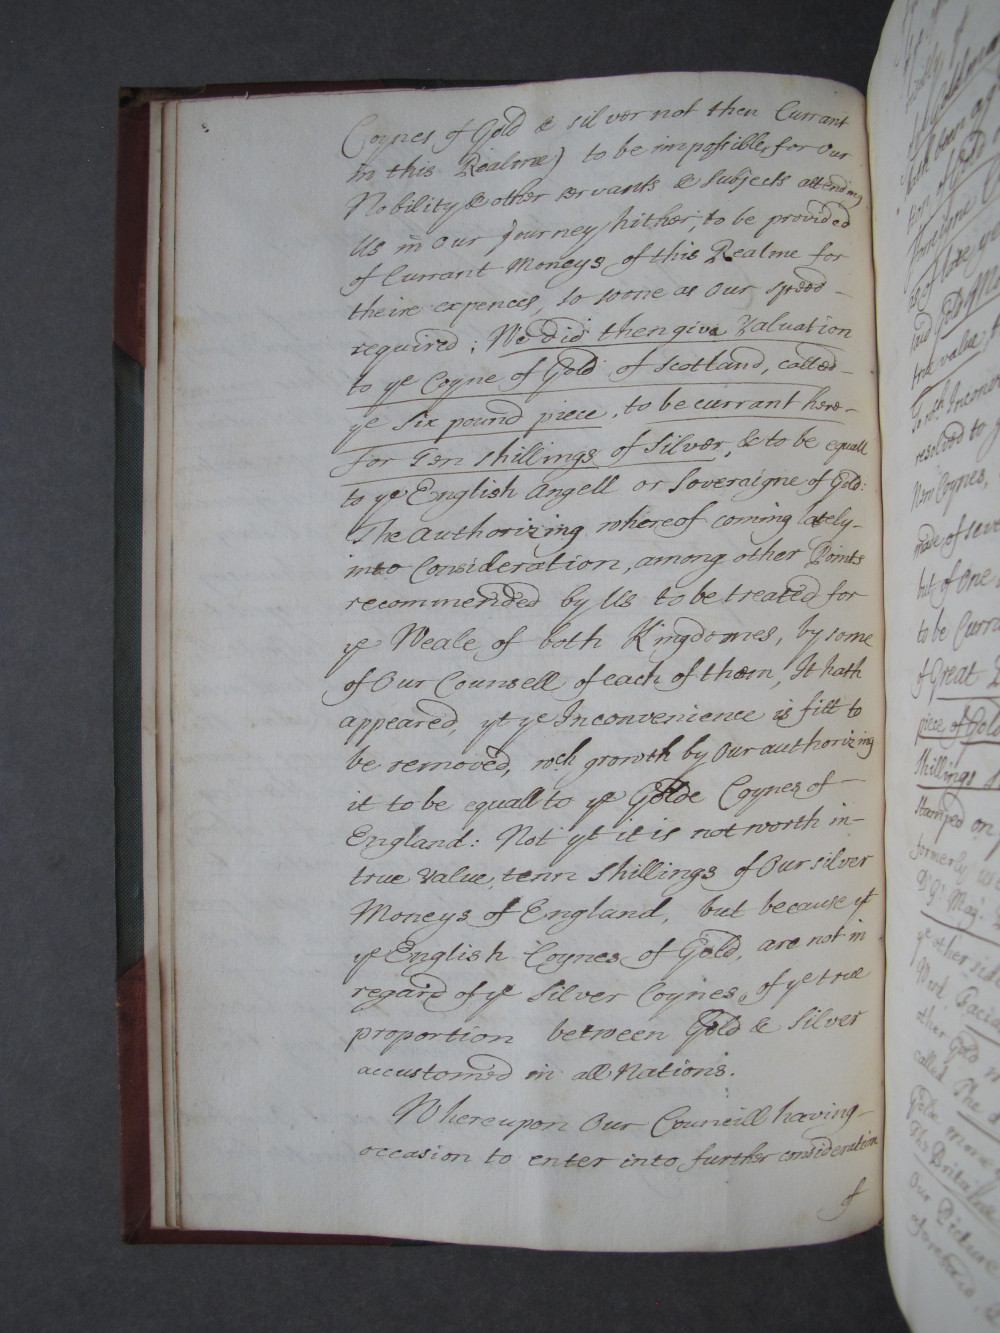 Coynes of Gold & silver not then Currant
in this Realme) to be impossible, for Our
Nobility & other servants & Subjects attending
Us in Our Journey hither, to be provided
of Currant Moneys of this Realme for
theire expences, so soone as Our speed
required; We did then give Valuation
to ye Coyne of Gold of Scotland, called
ye Six pound piece, to be currant here
for Ten shillings of Silver, & to be equall
to ye English Angell or Soveraigne of Gold:
The Authorizing whereof coming lately
into Consideration, among other Points
recommended by Us to be treated for
ye Weale of both Kingdomes, by some
of Our Counsell of each of them, It hath
appeared, yt ye Inconvenience is fitt to
be removed, wch groweth by Our authorizing
it to be equall to ye Golde Coynes of
England: Not yt it is not worth in
true value, tenn Shillings of Our silver
Moneys of England, but because yt
ye English Coynes of Gold, are not in
regard of ye Silver Coynes, of ye true
proportion between Gold & Silver
accustomed in all Nations.
Whereupon Our Councill having
occasion to enter into further consideration
of
true value,
resolved to
New Coynes,
made of seve
but of One
to be Curra
of Great
piece of Gold
Shillings
Stamped on
formerly
ye other sid
called The
Our Picture
aforesaid,